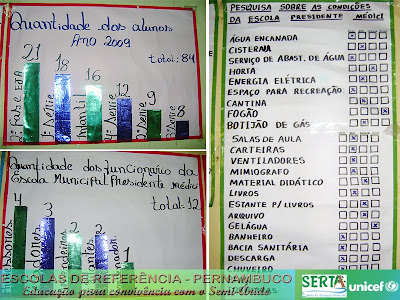 Quantidade dos alunos
Ano 2009
total: 84
21
18
16
12
9
8
2ª Fase EJA
1ª Série
Infantil
Quantidade dos funcionário da
Escola Municipal Presidente médici
total: 12
4
3
2
2
1
PESQUISA SOBRE AS CONDIÇÕES
DA ESCOLA PRESIDENTE MÉDICI
ÁGUA ENCANADA
CISTERNA
SERVIÇO DE ABAST. DE ÁGUA
HORTA
ENERGIA ELÉTRICA
ESPAÇO PARA RECREAÇÃO
CANTINA
FOGÃO
BOTIJÃO DE GÁS
SALAS DE AULA
CARTEIRAS
VENTILADORES
MIMIOGRAFO
MATERIAL DIDÁTICO
LIVROS
ESTANTE P/ LIVROS
ARQUIVO
GELÁGUA
BANHEIRO
BACIA SANITÁRIA
DESCARGA
CHUVEIRO
ESCOLAS DE REFERÊNCIA - PERNAMBUCO
Educação para convivência com o Semi-Árido
SERTA
unicef